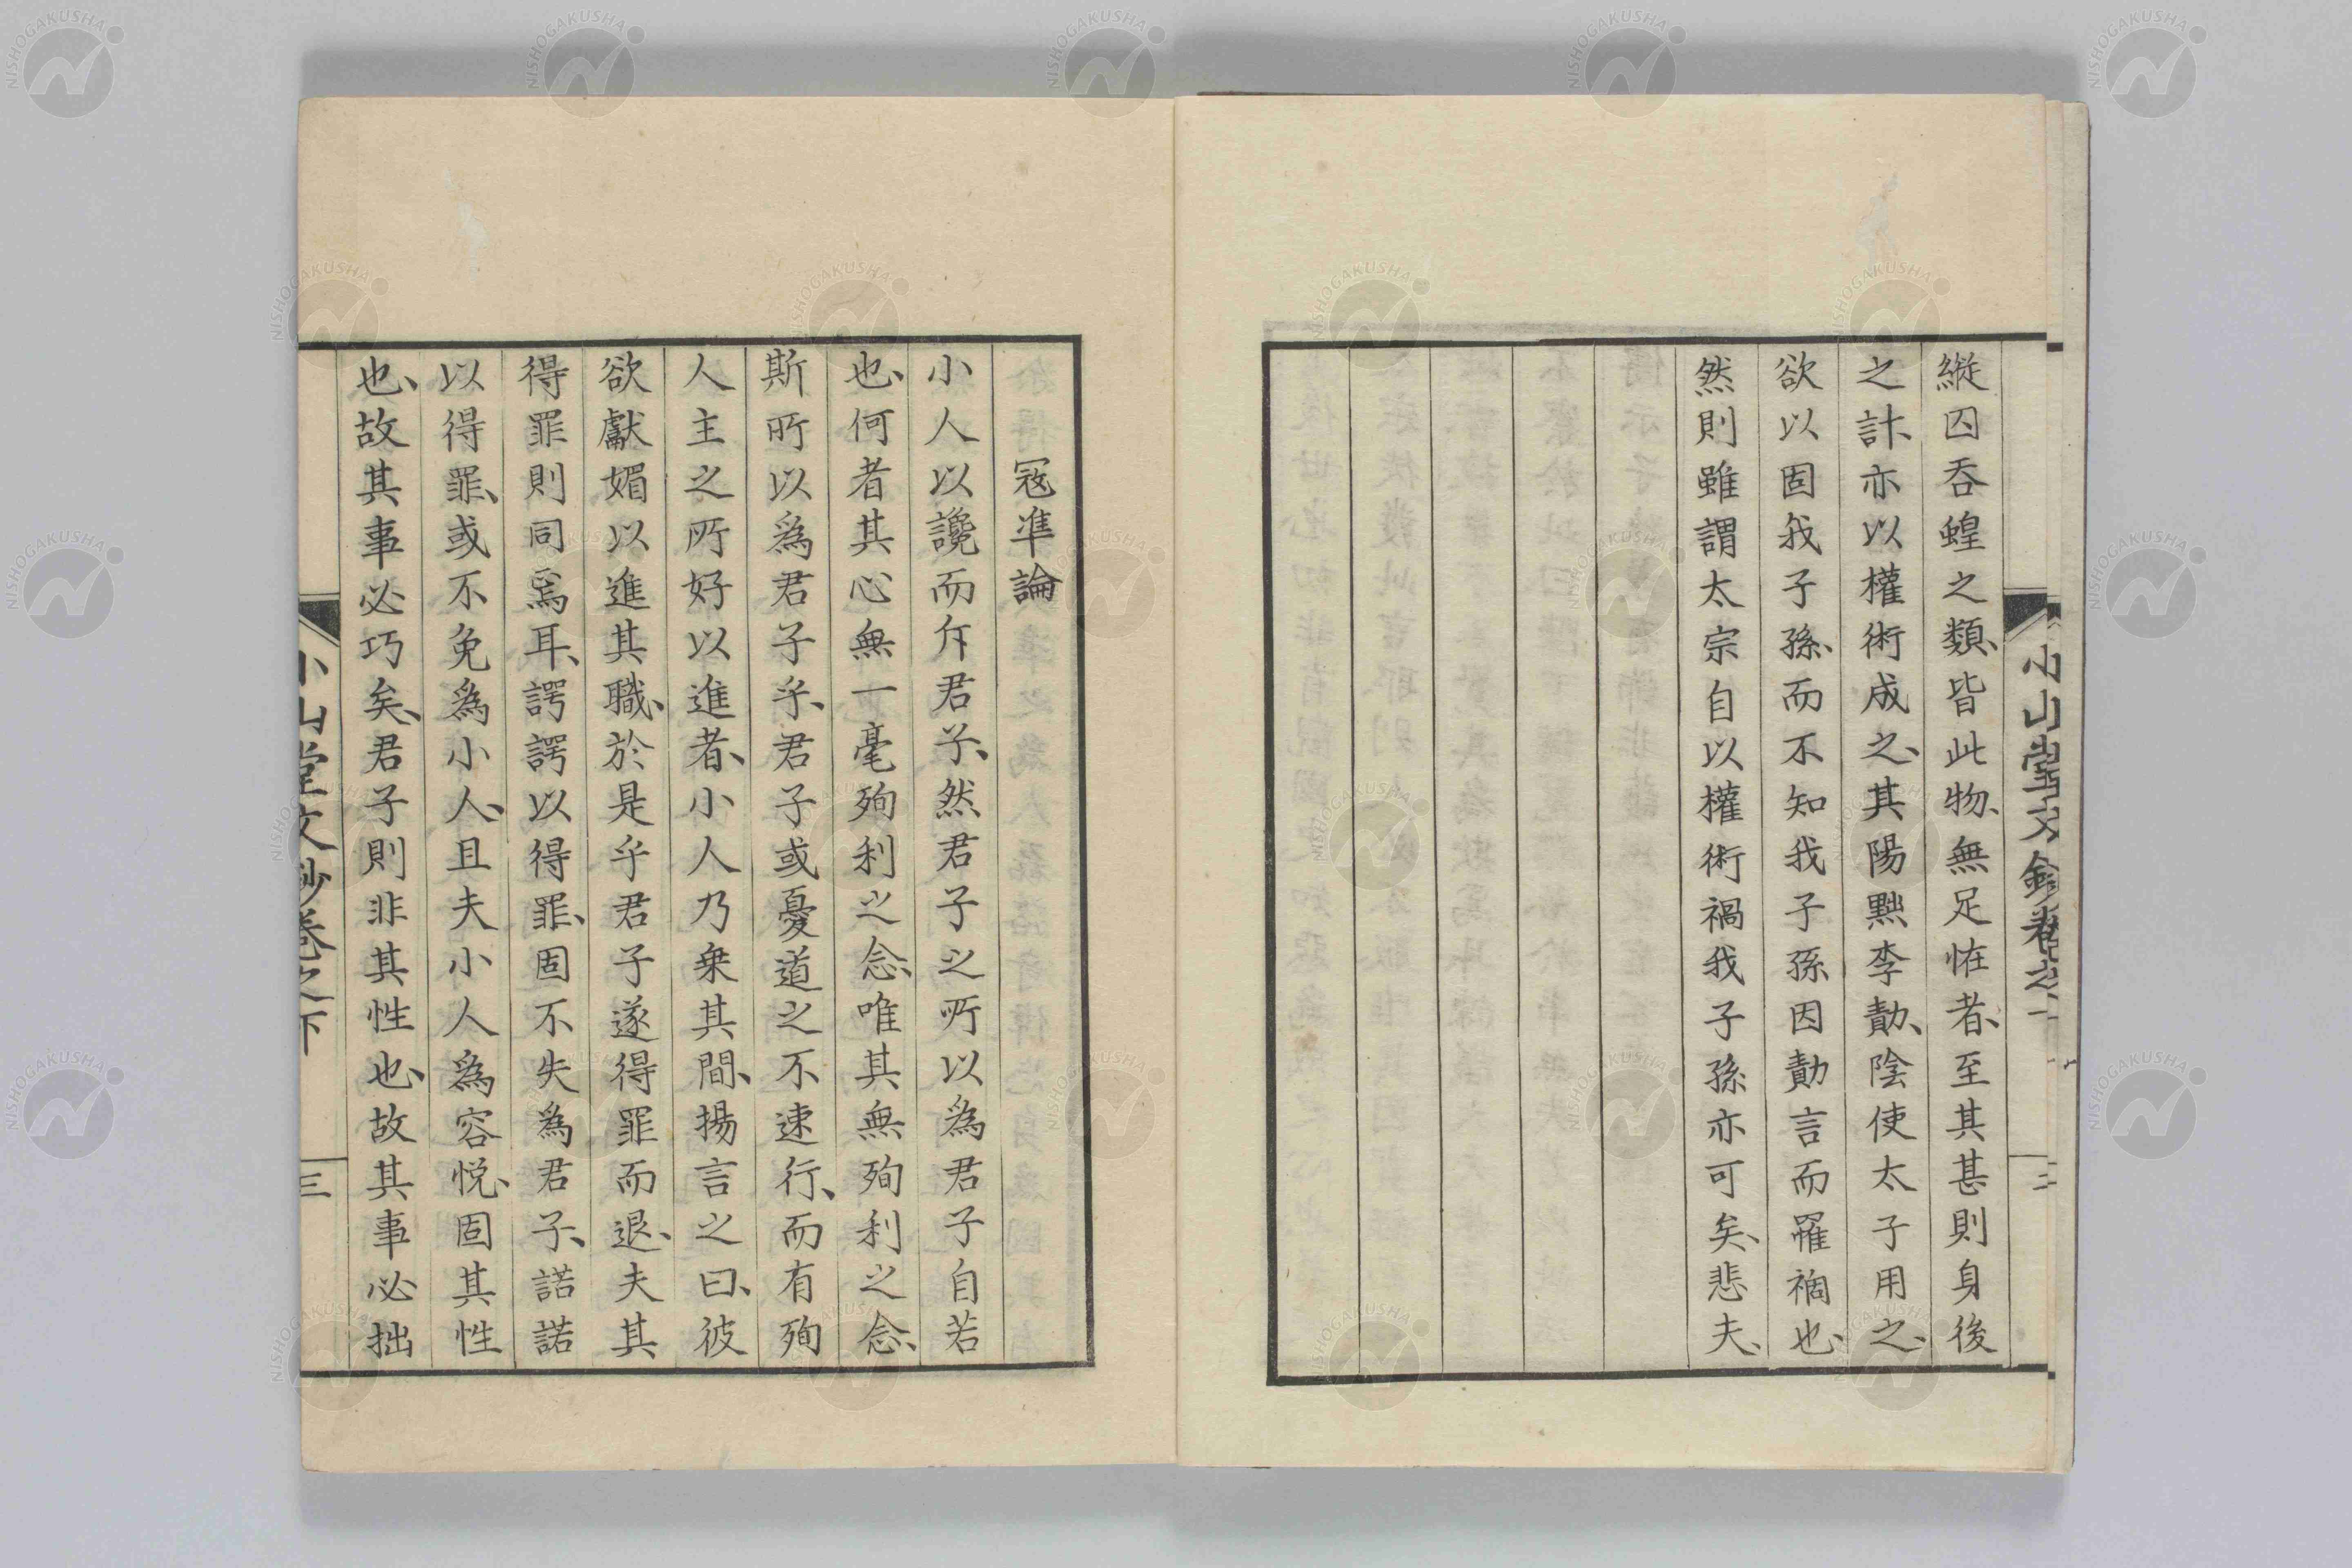 小山堂文鈔卷之
二
縱囚吞蝗之類、皆此物、無足恠者、至其甚則身後
之計、亦以權術成之、其陽黜李勣、陰使太子用之、
欲以固我子孫、而不知我子孫因勣言而羅禍也、
然則雖謂太宗自以權術禍我子孫亦可矣、悲夫、
冦準論
小人以讒而斥君子、然君子之所以為君子自若
也、何者其心無一毫殉利之念、唯其無殉利之念、
斯所以為君子乎、君子或憂道之不速行、而有殉
人主之所好以進者、小人乃乗其間、揚言之曰、彼
欲獻媚以進其職、於是乎君子遂得罪而退、夫其
得罪則同焉耳、諤諤以得罪、固不失為君子、諾諾
以得罪、或不免為小人、且夫小人為容悦、固其性
也、故其事必巧矣、君子則非其性也、故其事必拙
小山堂文鈔卷之下
三
NISHOGAKUSHA